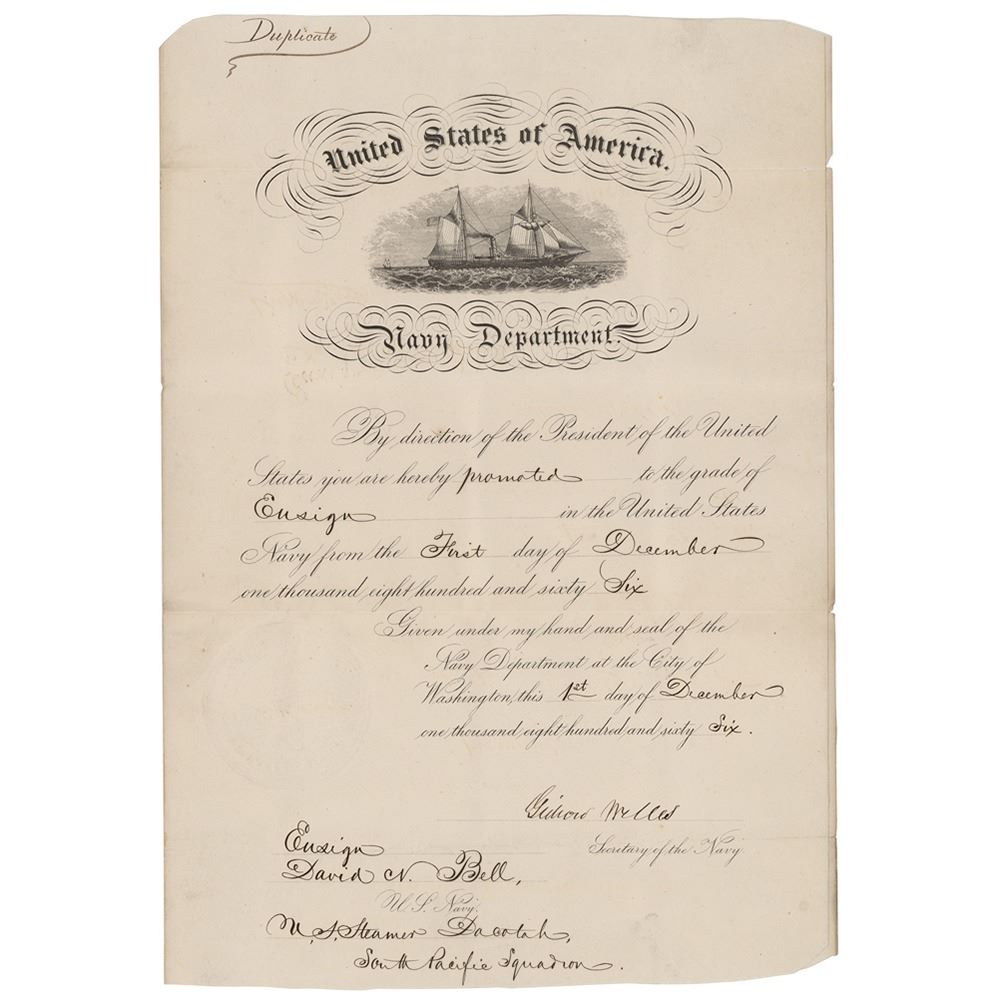 Duplicate
United States of America.
Navy Department.
By direction of the President of the United
States you are hereby promoted to the grade of
Ensign in the United States
Navy from the First day of December
one thousand eight hundred and sixty Six
Given under my hand and seal of the
Navy Department at the City of
Washington, this 1st day of December
one thousand eight hundred and sixty Six.
Gideon Welles
Secretary of the Navy.
Ensign
David N. Bell,
U.S. Navy.
U.S. Steamer Dacotah,
South Pacific Squadron.